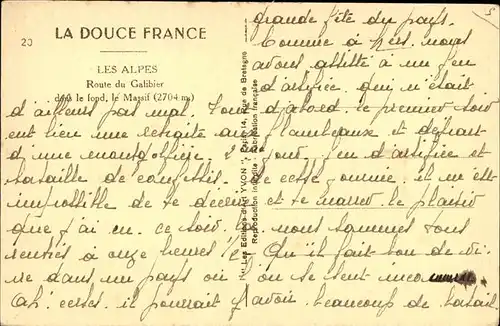 20
LA DOUCE FRANCE
LES ALPES
Route du Galibier
dans le fond, le Massif (2704 m)
Les Editions d'Art YVON, Paris, 15, Rue de Bretagne
Reproduction interdite Fabrication française
5
grande fête du pays.
Comme à nous
avons assisté à un feu
d'artifice qui n'était
d'ailleurs pas mal. Tout d'abord le premier soir
eut lieu une retraite aux flambeaux et départ
d'une montgolfière. feu d'artifice et
bataille de confettis. comme il m'est
impossible de te décrire et te narrer le plaisir
que j'ai eu ce soir. nous sommes tous
rentrés à onze heures 1/2 Qu'il fait bon de vi-
vre dans un pays où on se sent
Ah! certes il pourrait y avoir beaucoup de